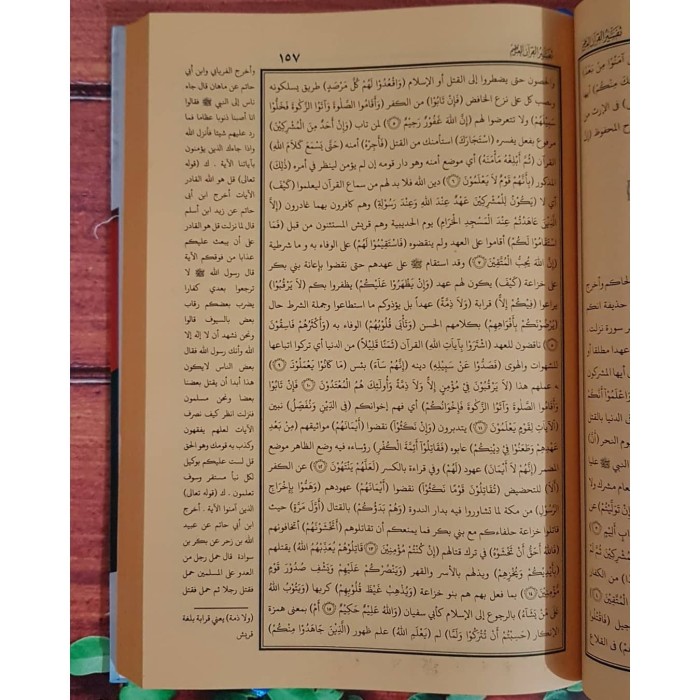 ١٥٧
تفسير القرآن العظيم
والحصون حتى يضطروا إلى القتل أو الإسلام (وَاقْعُدُوا لَهُمْ كُلَّ مَرْصَدٍ) طريق يسلكونه
ونصب كل على نزع الخافض (فَإِنْ تَابُوا) من الكفر (وَأَقَامُوا الصَّلَوةَ وَآتَوُا الزَّكَوةَ فَخَلُّوا
سَبِيلَهُمْ) ولا تتعرضوا لهم (إِنَّ اللَّهَ غَفُورٌ رَحِيمٌ ۝٥) لمن تاب (وَإِنْ أَحَدٌ مِنَ الْمُشْرِكِينَ)
مرفوع بفعل يفسره (اسْتَجَارَكَ) استأمنك من القتل (فَأَجِرْهُ) أمنه (حَتَّى يَسْمَعَ كَلَامَ اللَّهِ)
القرآن (ثُمَّ أَبْلِغْهُ مَأْمَنَهُ) أي موضع أمنه وهو دار قومه إن لم يؤمن لينظر في أمره (ذَلِكَ)
المذكور (بِأَنَّهُمْ قَوْمٌ لَا يَعْلَمُونَ ۝٦) دين الله فلا بد لهم من سماع القرآن ليعلموا (كَيْفَ)
أي لا (يَكُونُ لِلْمُشْرِكِينَ عَهْدٌ عِنْدَ اللَّهِ وَعِنْدَ رَسُولِهِ) وهم كافرون بهما غادرون (إِلَّا
الَّذِينَ عَاهَدْتُمْ عِنْدَ الْمَسْجِدِ الْحَرَامِ) يوم الحديبية وهم قريش المستثنون من قبل (فَمَا
اسْتَقَامُوا لَكُمْ) أقاموا على العهد ولم ينقضوه (فَاسْتَقِيمُوا لَهُمْ) على الوفاء به و ما شرطية
(إِنَّ اللَّهَ يُحِبُّ الْمُتَّقِينَ ۝٧) وقد استقام ﷺ على عهدهم حتى نقضوا بإعانة بني بكر
على خزاعة (كَيْفَ) يكون لهم عهد (وَإِنْ يَظْهَرُوا عَلَيْكُمْ) يظفروا بكم (لَا يَرْقُبُوا)
يراعوا (فِيكُمْ إِلًّا) قرابة (وَلَا ذِمَّةً) عهداً بل يؤذوكم ما استطاعوا وجملة الشرط حال
(يُرْضُونَكُمْ بِأَفْوَاهِهِمْ) بكلامهم الحسن (وَتَأْبَى قُلُوبُهُمْ) الوفاء به (وَأَكْثَرُهُمْ فَاسِقُونَ
۝٨) ناقضون للعهد (اشْتَرَوْا بِآيَاتِ اللَّهِ) القرآن (ثَمَنًا قَلِيلًا) من الدنيا أي تركوا اتباعها
للشهوات والهوى (فَصَدُّوا عَنْ سَبِيلِهِ) دينه (إِنَّهُمْ سَاءَ) بئس (مَا كَانُوا يَعْمَلُونَ ۝٩)
ـه عملهم هذا (لَا يَرْقُبُونَ فِي مُؤْمِنٍ إِلًّا وَلَا ذِمَّةً وَأُولَئِكَ هُمُ الْمُعْتَدُونَ ۝١٠ فَإِنْ تَابُوا
وَأَقَامُوا الصَّلَوةَ وَآتَوُا الزَّكَوةَ فَإِخْوَانُكُمْ) أي فهم إخوانكم (فِي الدِّينِ وَنُفَصِّلُ) نبين
(الْآيَاتِ لِقَوْمٍ يَعْلَمُونَ ۝١١) يتدبرون (وَإِنْ نَكَثُوا) نقضوا (أَيْمَانَهُمْ) مواثيقهم (مِنْ بَعْدِ
عَهْدِهِمْ وَطَعَنُوا فِي دِينِكُمْ) عابوه (فَقَاتِلُوا أَئِمَّةَ الْكُفْرِ) رؤساءه فيه وضع الظاهر موضع
المضمر (إِنَّهُمْ لَا أَيْمَانَ) عهود (لَهُمْ) وفي قراءة بالكسر (لَعَلَّهُمْ يَنْتَهُونَ ۝١٢) عن الكفر
(أَلَا) للتحضيض (تُقَاتِلُونَ قَوْمًا نَكَثُوا) نقضوا (أَيْمَانَهُمْ) عهودهم (وَهَمُّوا بِإِخْرَاجِ
الرَّسُولِ) من مكة لما تشاوروا فيه بدار الندوة (وَهُمْ بَدَءُوكُمْ) بالقتال (أَوَّلَ مَرَّةٍ) حيث
قاتلوا خزاعة حلفاءكم مع بني بكر فما يمنعكم أن تقاتلوهم (أَتَخْشَوْنَهُمْ) أتخافونهم
(فَاللَّهُ أَحَقُّ أَنْ تَخْشَوْهُ) في ترك قتالهم (إِنْ كُنْتُمْ مُؤْمِنِينَ ۝١٣ قَاتِلُوهُمْ يُعَذِّبْهُمُ اللَّهُ) يقتلهم
(بِأَيْدِيكُمْ وَيُخْزِهِمْ) ويذلهم بالأسر والقهر (وَيَنْصُرْكُمْ عَلَيْهِمْ وَيَشْفِ صُدُورَ قَوْمٍ
مُؤْمِنِينَ ۝١٤) بما فعل بهم هم بنو خزاعة (وَيُذْهِبْ غَيْظَ قُلُوبِهِمْ) كربها (وَيَتُوبُ اللَّهُ
عَلَى مَنْ يَشَاءُ) بالرجوع إلى الإسلام كأبي سفيان (وَاللَّهُ عَلِيمٌ حَكِيمٌ ۝١٥ أَمْ) بمعنى همزة
الإنكار (حَسِبْتُمْ أَنْ تُتْرَكُوا وَلَمَّا) لم (يَعْلَمِ اللَّهُ) علم ظهور (الَّذِينَ جَاهَدُوا مِنْكُمْ)
وأخرج الفريابي وابن أبي
حاتم عن ماهان قال جاء
ناس إلى النبي ﷺ فقالوا
انا أصبنا ذنوبا عظاما فما
رد عليهم شيئا فأنزل الله
واذا جاءك الذين يؤمنون
بآياتنا الآية . ك (قوله
تعالى) قل هو القادر
الآيات أخرج ابن أبي
حاتم عن زيد ابن أسلم
قال لما نزلت قل هو القادر
على أن يبعث عليكم
عذابا من فوقكم الآية
قال رسول الله ﷺ لا
ترجعوا بعدي كفارا
يضرب بعضكم رقاب
بعض بالسيوف قالوا
ونحن نشهد أن لا إله إلا
الله وأنك رسول الله فقال
بعض الناس لايكون
هذا أبدا أن يقتل بعضنا
بعضا ونحن مسلمون
فنزلت انظر كيف نصرف
الآيات لعلهم يفقهون
وكذب به قومك وهو الحق
قل لست عليكم بوكيل
لكل نبأ مستقر وسوف
تعلمون . ك (قوله تعالى)
الذين آمنوا الآية . أخرج
ابن أبي حاتم عن عبيد
الله بن زحر عن بكر بن
سوادة قال حمل رجل من
العدو على المسلمين حمل
فقتل رجلا ثم حمل فقتل
(ولا ذمة) يعني قرابة بلغة
قريش